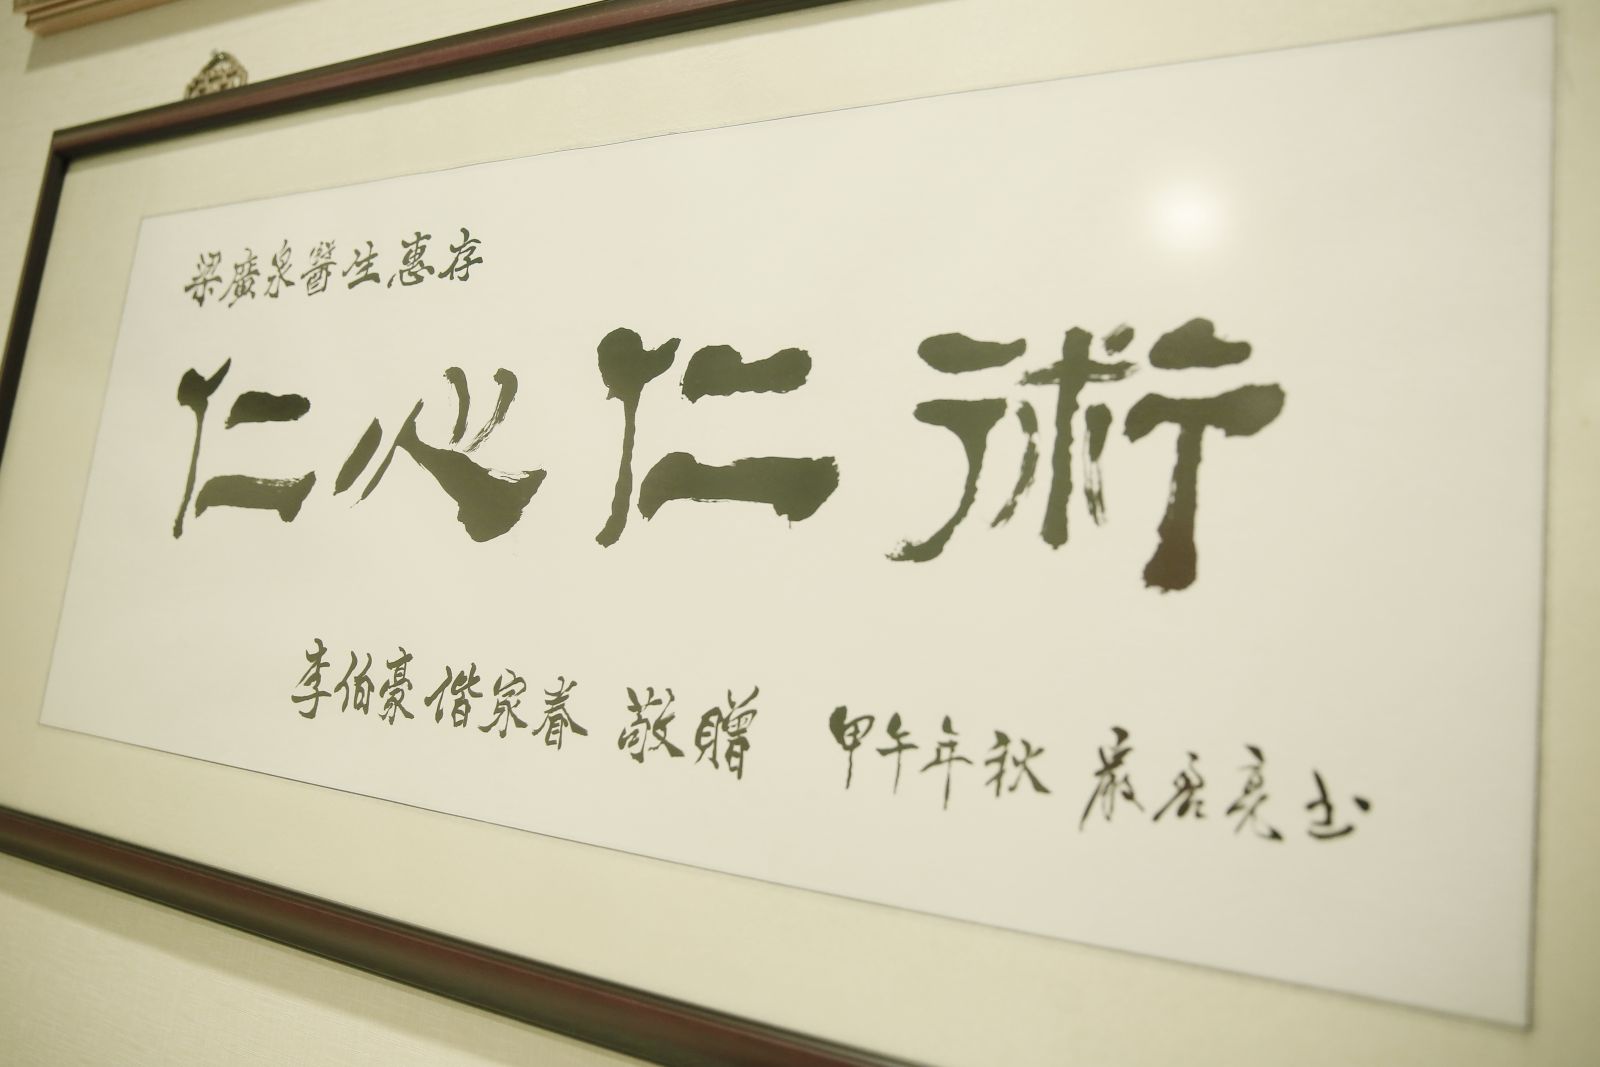 梁廣泉醫生惠存
仁心仁術
李伯豪偕家眷 敬贈 甲午年秋 嚴君亮书